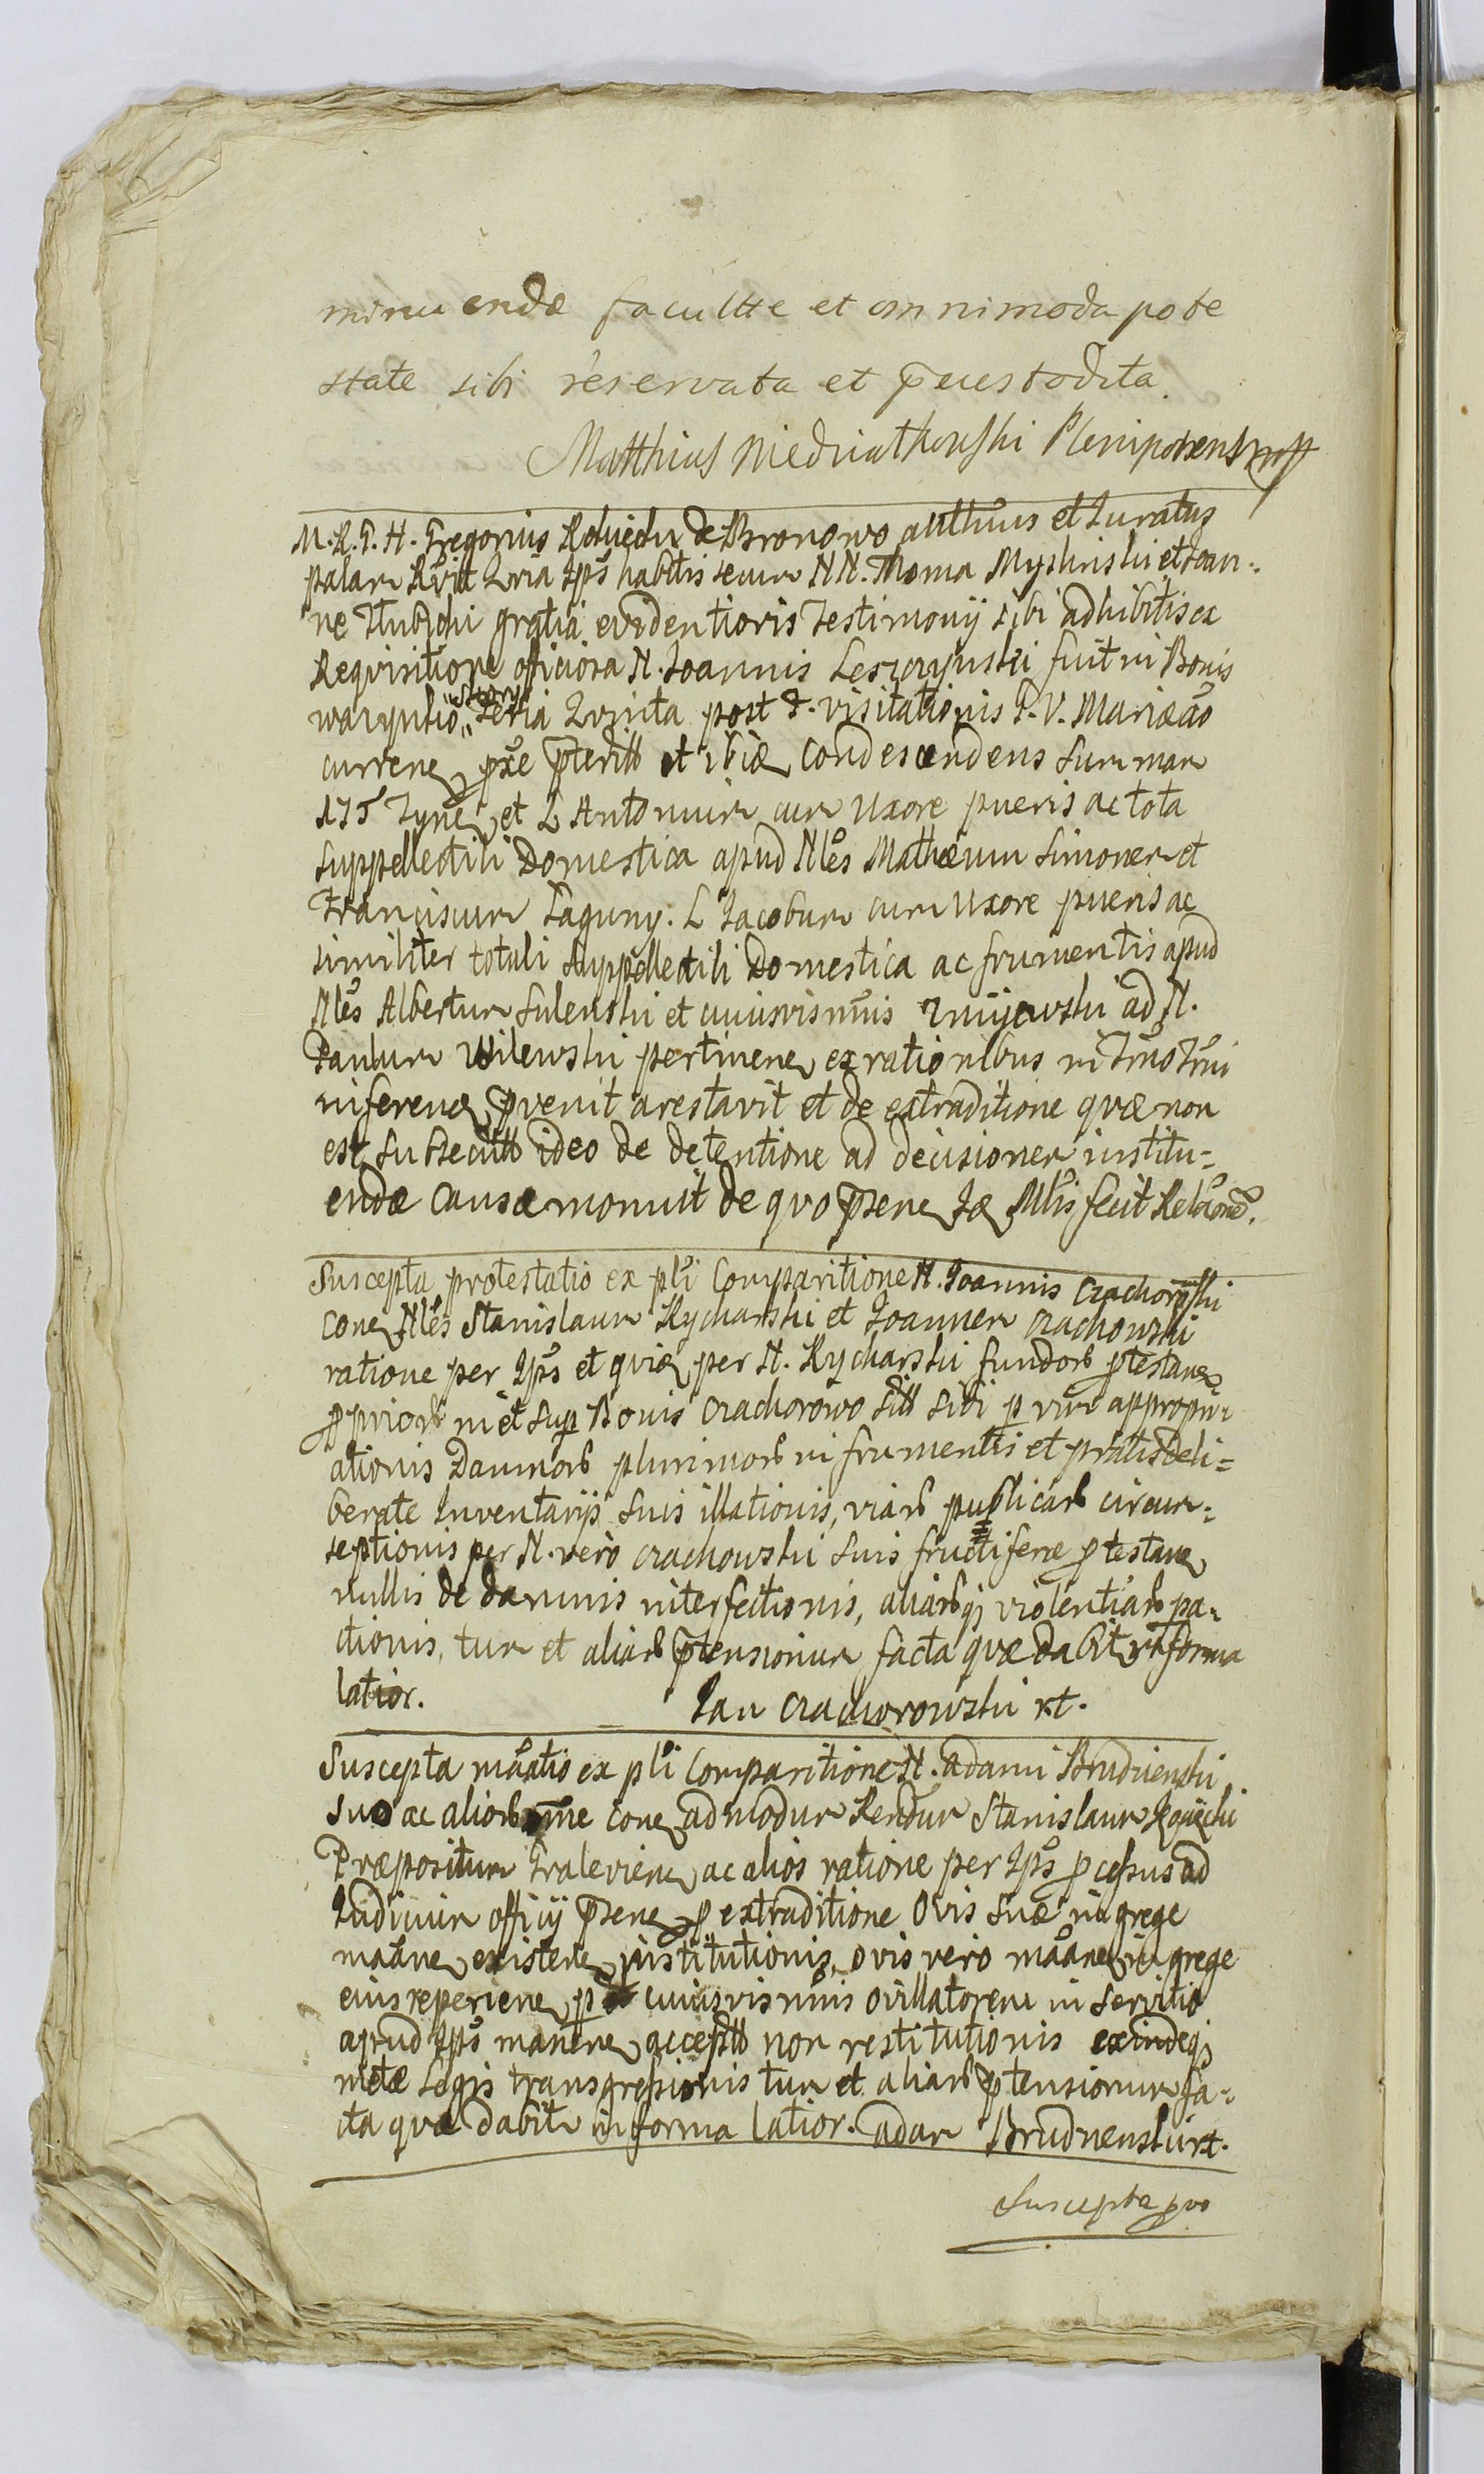 minuendæ facultte et omnimoda pote
state sibi reservata et p̄custodita
Matthias Niedriathowski Plenipotens mp
M. R. T. H. Gregorius de Bronowo autthūs et Juratus
palam habitis secum NN. Thoma Myslinski et Joan-
ne gratia evidentioris Testimonij sibi adhibitis ex
Requisitione officiosa N. Joannis Leszczynski fuit in Bonis
feria Qvinta post F. visitationis B. V. Mariæ aō
currenꝫ condescendens summam
175 Tynꝫ et L Antonium cum Uxore pueris ac tota
suppellectili Domestica apud Nlēs Mathæum Simonem et
Franciscum Laguny. L Jacobum cum Uxore pueris ac
similiter totali suppellectili Domestica ac frumentis apud
Nlēs Albertum Sulenski et cuiusvis nūis Zmijewski ad N.
Paulum Wilewski pertinenꝫ ex rationibus in
inferenꝫ p̄venit arestavit et de extraditione quæ non
est subsecutt ideo de detentione ad decisionem institu=
endæ causæ monuit de quo p̄senꝫ fecit Relaōnē.
Suscepta protestatio ex pl̄i Comparitione N. Joannis Czachorowski
conꝫ Nlēs Stanislaum Rycharski et Joannem Czachowski
ratione per Ips̄ et quiꝫ per N. Rycharski fundorꝫ ꝓtestanꝫ
ꝓpriorꝫ in et sup Bonis Czachorowo sitt sibi ꝑ vim appropri-
ationis Damnorꝫ plurimorꝫ in frumentis et pratis deli=
berate Inventarijs suis illationis, viarꝫ publicarꝫ circum=
septionis per N. verò Czachowski suis fructiferæ ꝓtestanꝫ
nullis de damnis interfectionis, aliarꝫqꝫ violentiarꝫ pa-
ctionis, tum et aliarꝫ p̄tensionum facta quæ dabitr in forma
latior. Jan Czachorowski rt.
Suscepta māatio ex pl̄i Comparitione N. Adami Brudnienski
suo ac aliorꝫ nōme conꝫ admodum Rendum Stanislaum
Præpositum Gralevienꝫ ac alios ratione per Ips̄ ꝓcessus ad
Iudicium officij p̄senꝫ ꝓ extraditione Ovis suæ in grege
māanꝫ existenꝫ institutionis, ovis vero māanꝫ in grege
eius reperienꝫ ꝑ cuiusvis nūis ovillatorem in servitio
apud Ips̄ manenꝫ acceptt non restitutionis exindeqꝫ
metæ Legis transgressionis tum et aliarꝫ p̄tensionum fa-
cta quæ dabitr in forma latior. Adam Brudnienski rt.
Suscepta pro